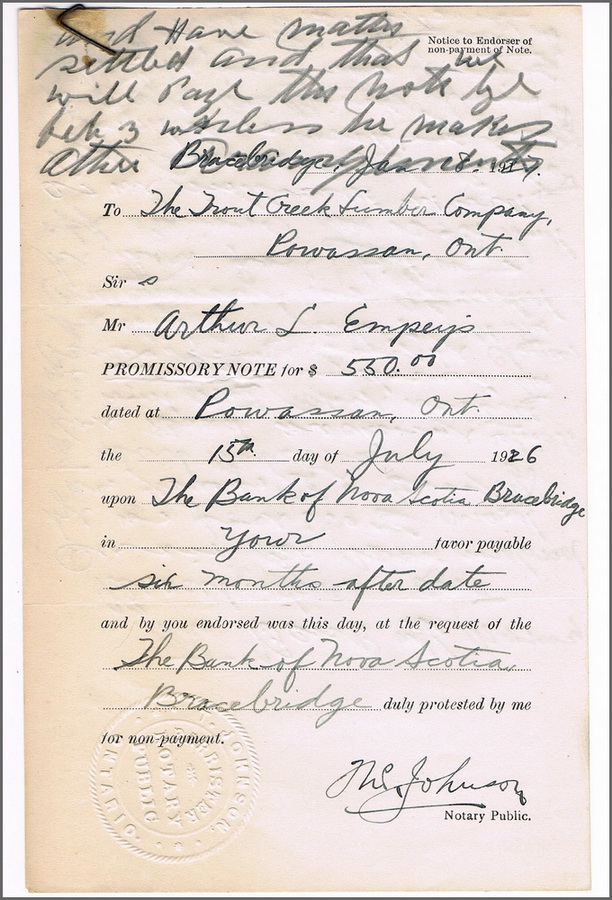 and Have matters
settled and that we
will Pay this note by
feb 3 unless he makes
other
Notice to Endorser of
non-payment of Note.
Bracebridge, Jan 18. 1927.
To The Trout Creek Lumber Company,
Powassan, Ont.
Sir s
Mr Arthur L. Empey's
PROMISSORY NOTE for $ 550.00
dated at Powassan, Ont.
the 15th day of July 1926
upon The Bank of Nova Scotia Bracebridge
in Your favor payable
six months after date
and by you endorsed was this day, at the request of the
The Bank of Nova Scotia,
Bracebridge duly protested by me
for non-payment.
Johnson
Notary Public.
JOHNSON
BARRISTER
NOTARY
PUBLIC
ONTARIO